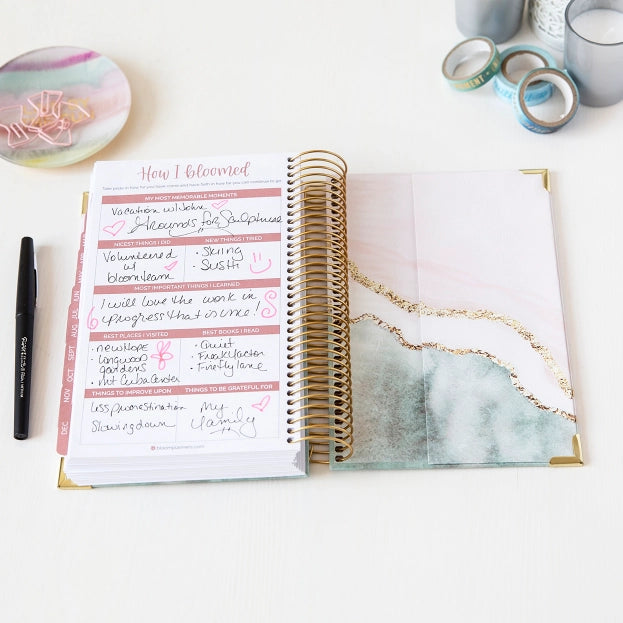 How I bloomed
Take pride in how far you have come and have faith in how far you can continue to go.
MY MOST MEMORABLE MOMENTS
Vacation w/John
Grounds for Sculptures
NICEST THINGS I DID
NEW THINGS I TRIED
Volunteered
w/
bloom team
• Skiing
• Sushi
MOST IMPORTANT THINGS I LEARNED
I will love the work in
progress that is me!
BEST PLACES I VISITED
BEST BOOKS I READ
• new Hope
• Longwood
gardens
• mt Cuba Center
• Quiet
• Freak Factor
• Firefly lane
THINGS TO IMPROVE UPON
THINGS TO BE GRATEFUL FOR
less procrastination
Slowing down
My
family
bloomplanners.com
MAY
JUN
JUL
AUG
SEPT
OCT
NOV
DEC